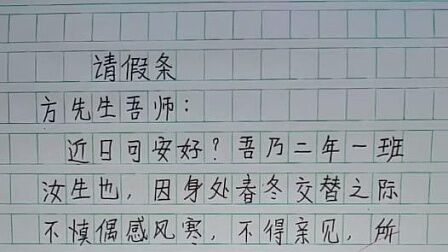 请假条
方先生吾师：
近日可安好？吾乃二年一班
汝生也，因身处春冬交替之际
不慎偶感风寒，不得亲见，所